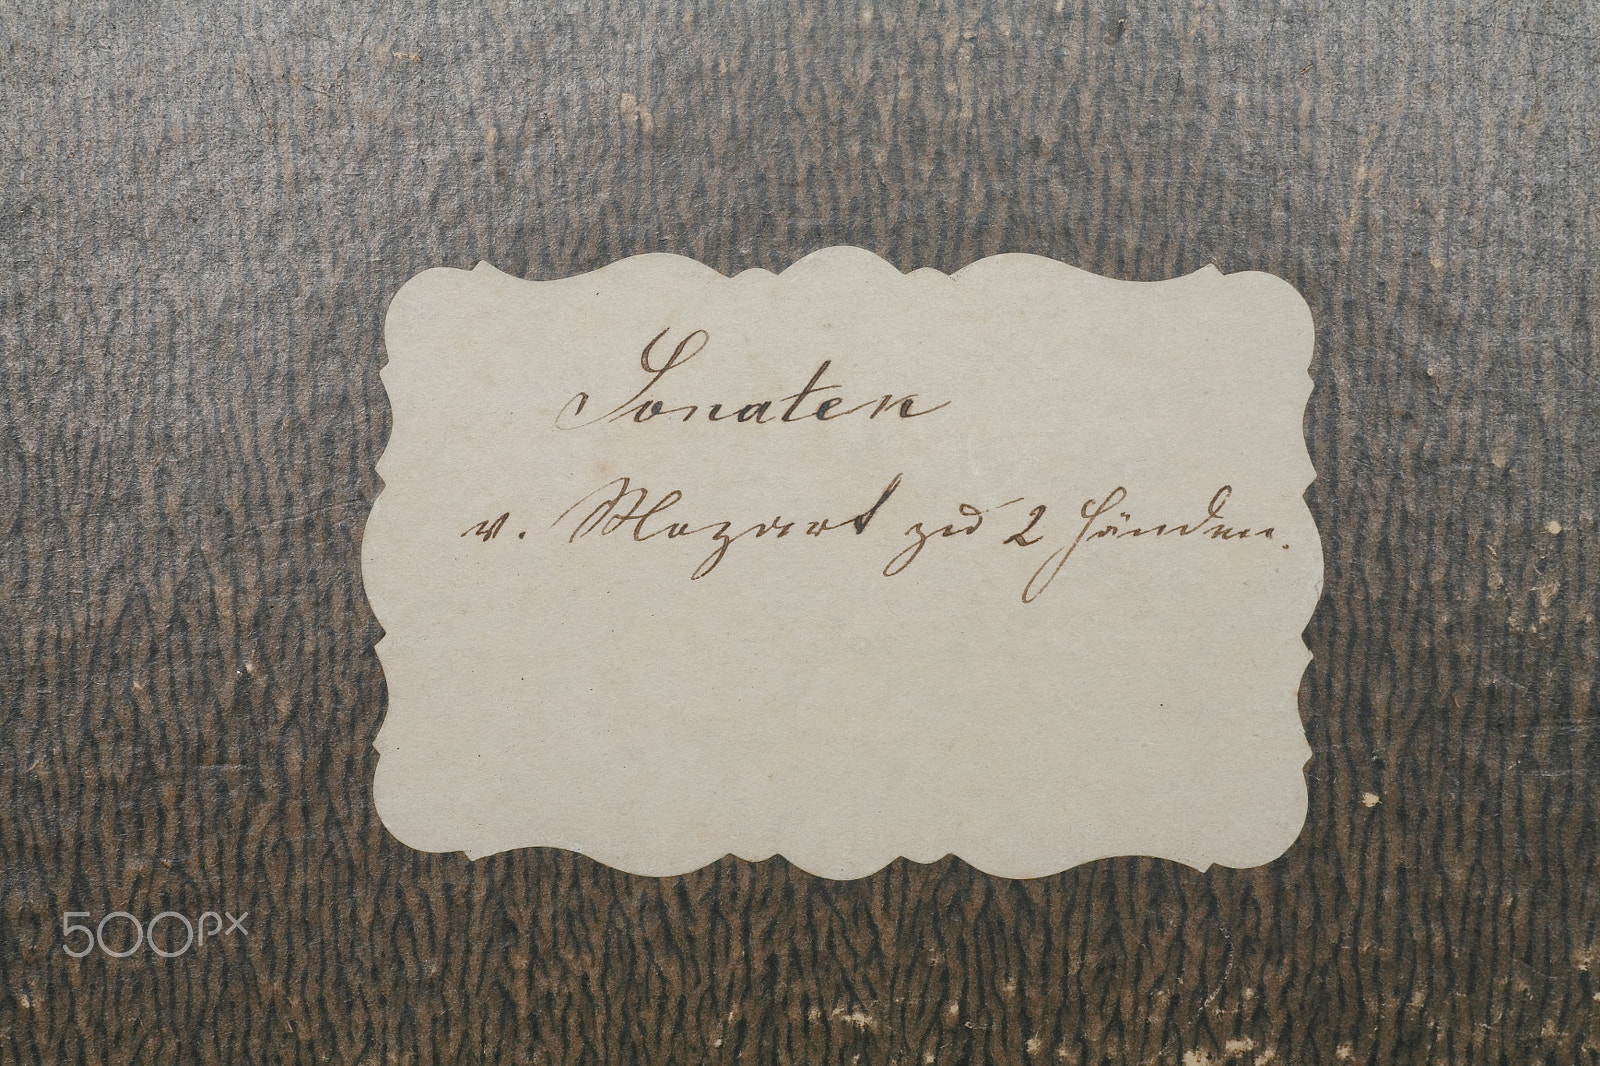 Sonaten
v. Mozart zu 2 Händen.
500px